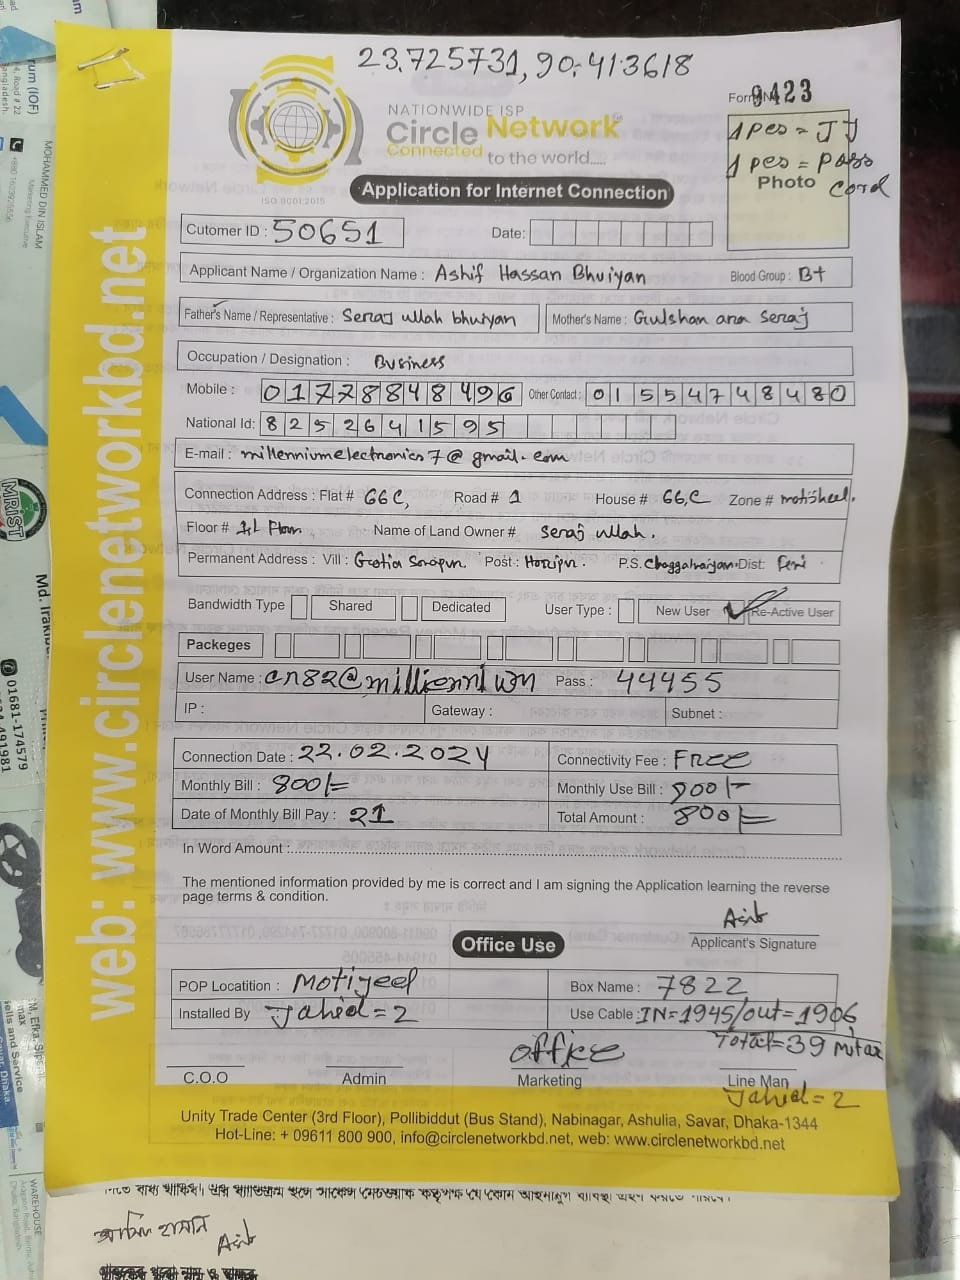 23.725731, 90.413618
NATIONWIDE ISP
Circle Network
Connected to the world.....
ISO 9001:2015
Application for Internet Connection
Form No 9423
1 pes = JJ
1 pes = pass cord
Photo
Cutomer ID : 50651 Date:
Applicant Name / Organization Name : Ashif Hassan Bhuiyan Blood Group : B+
Father's Name / Representative : Seraj ullah bhuiyan Mother's Name : Gulshan ara Seraj
Occupation / Designation : Business
Mobile : 01778848496 Other Contact : 01554748480
National Id: 8252641595
E-mail : millenniumelectronics7@gmail.com
Connection Address : Flat # 66C, Road # 1 House # 66,C Zone # motisheel.
Floor # 1st Floor Name of Land Owner # Seraj ullah.
Permanent Address : Vill : Post : Horipur. P.S. Dist: Feni
Bandwidth Type Shared Dedicated User Type : New User Re-Active User
Packeges
User Name : cn82@millionnium Pass : 44455
IP : Gateway : Subnet :
Connection Date : 22.02.2024 Connectivity Fee : FREE
Monthly Bill : 800/= Monthly Use Bill : 800/-
Date of Monthly Bill Pay : 21 Total Amount : 800/=
In Word Amount :
The mentioned information provided by me is correct and I am signing the Application learning the reverse
page terms & condition.
Asib
Applicant's Signature
Office Use
POP Locatition : Motijeel Box Name : 7822
Installed By Jahed = 2 Use Cable : IN=1945/out=1906
Total=39 Mitar
C.O.O Admin office Marketing Line Man
Jahed = 2
Unity Trade Center (3rd Floor), Pollibiddut (Bus Stand), Nabinagar, Ashulia, Savar, Dhaka-1344
Hot-Line: + 09611 800 900, info@circlenetworkbd.net, web: www.circlenetworkbd.net
web: www.circlenetworkbd.net
MOHAMMED DIN ISLAM
Marketing Executive
MRIST
01681-174579
WAREHOUSE
Asib